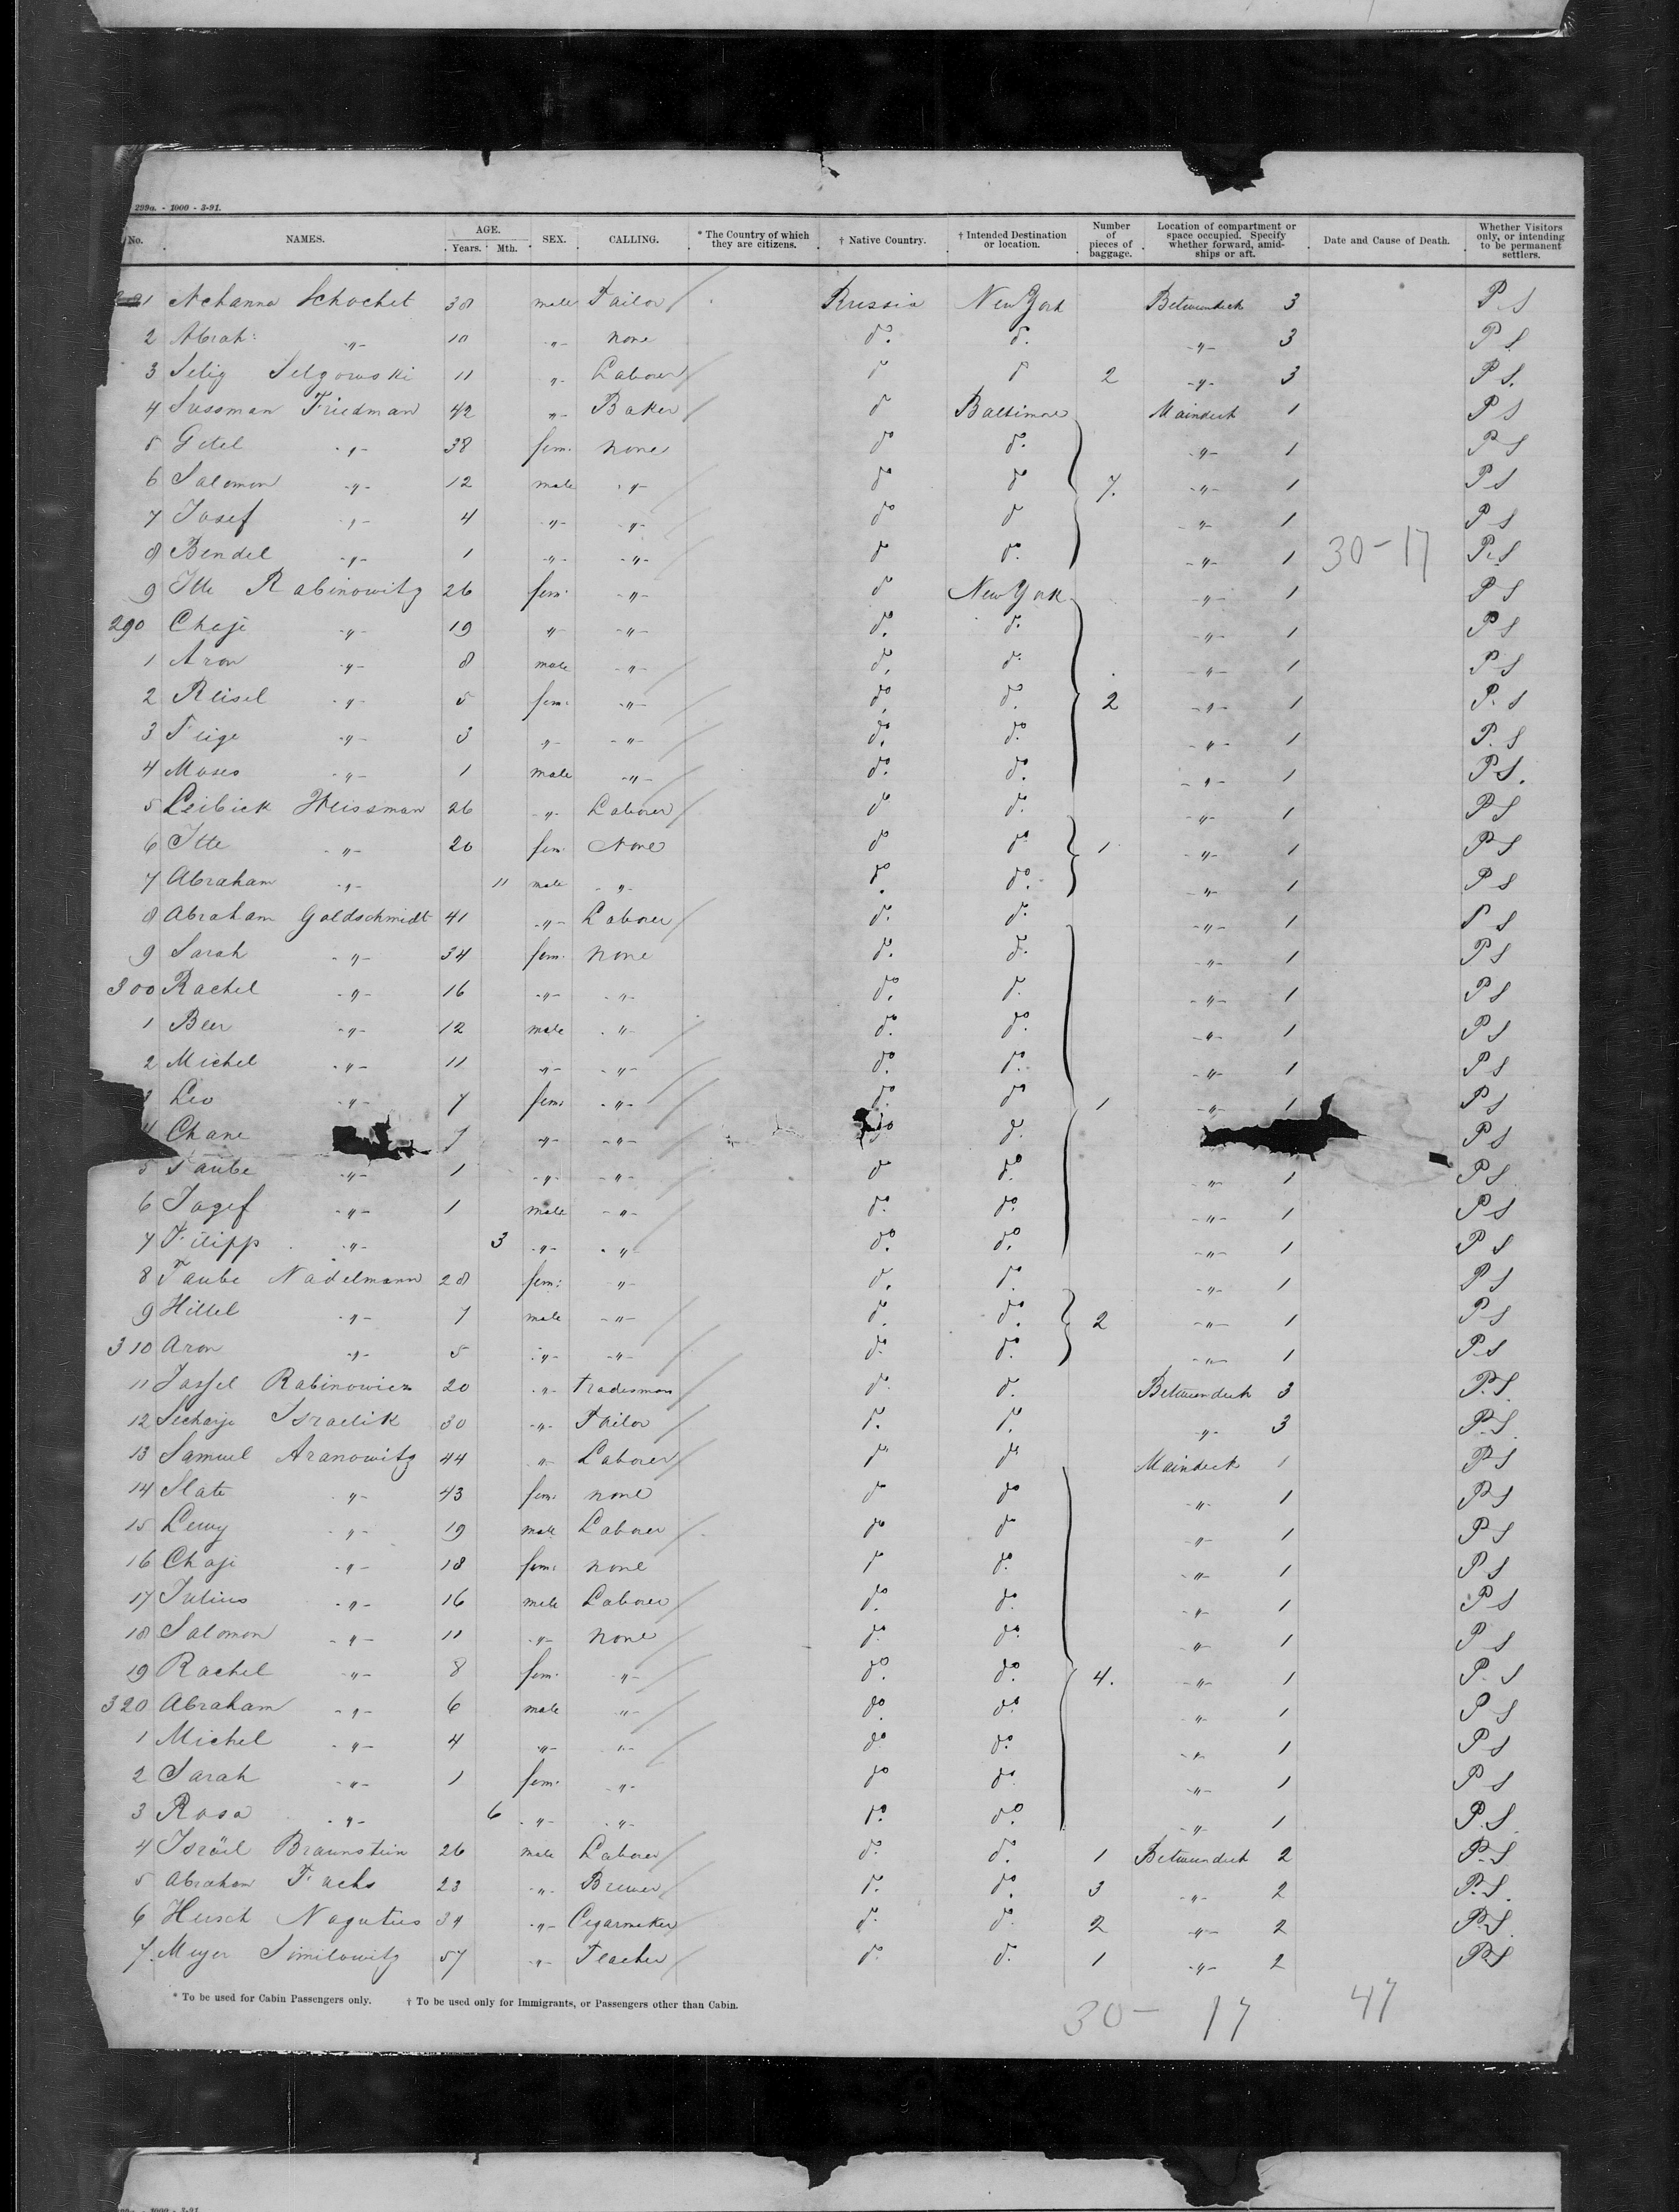 299a. - 1000 - 3-91.
No. NAMES. AGE. Years. Mth. SEX. CALLING. * The Country of which they are citizens. † Native Country. † Intended Destination or location. Number of pieces of baggage. Location of compartment or space occupied. Specify whether forward, amidships or aft. Date and Cause of Death. Whether Visitors only, or intending to be permanent settlers.
1 Nchanna Schochet 38 male Tailor Russia New York Betweendeck 3 P S
2 Abrah: -"- 10 -"- none do. do. -"- 3 P S
3 Selig Selgowski 11 -"- Laborer do do 2 -"- 3 P S.
4 Sussman Friedman 42 -"- Baker do Baltimore Maindeck 1 P S
5 Gitel -"- 38 fem. none do do. -"- 1 P S
6 Salomon -"- 12 male -"- do do 7. -"- 1 P S
7 Josef -"- 4 -"- -"- do do -"- 1 P S
8 Bendel -"- 1 -"- -"- do do. -"- 1 30-17 P S
9 Itte Rabinowitz 26 fem. -"- do New York -"- 1 P S
290 Chaje -"- 19 -"- -"- do. do. -"- 1 P S
1 Aron -"- 8 male -"- do. do. -"- 1 P S
2 Reisel -"- 5 fem. -"- do. do. 2 -"- 1 P. S
3 Feige -"- 3 -"- -"- do. do. -"- 1 P. S
4 Moses -"- 1 male -"- do. do. -"- 1 P S.
5 Leibick Weissman 26 -"- Laborer do do. -"- 1 P S
6 Itte -"- 20 fem. None do do. 1 -"- 1 P S
7 Abraham -"- 11 male -"- do. do. -"- 1 P S
8 Abraham Goldschmidt 41 -"- Laborer do. do. -"- 1 P S
9 Sarah -"- 34 fem. none do. do. -"- 1 P S
300 Rachel -"- 16 -"- -"- do. do. -"- 1 P S
1 Beer -"- 12 male -"- do. do. -"- 1 P S
2 Michel -"- 11 -"- -"- do. do. -"- 1 P S
3 Leo -"- 7 fem. -"- do. do 1 -"- 1 P S
4 Chane 7 -"- -"- do do. P S
5 Taube -"- 1 -"- -"- do do. -"- 1 P S
6 Josef -"- 1 male -"- do. do. -"- 1 P S
7 Filipp -"- 3 -"- -"- do. do. -"- 1 P S
8 Taube Nadelmann 28 fem. -"- do. do. -"- 1 P S
9 Hillel -"- 7 male -"- do. do. 2 -"- 1 P S
310 Aron -"- 5 -"- -"- do. do. -"- 1 P. S
11 Jossel Rabinowicz 20 -"- tradesman do. do. Betweendeck 3 P. S
12 Secharje Israelik 30 -"- Tailor do. do. -"- 3 P. S.
13 Samuel Aranowitz 44 -"- Laborer do do Maindeck 1 P S
14 Slate -"- 43 fem. none do do -"- 1 P S
15 Lewy -"- 19 male Laborer do do -"- 1 P S
16 Chaje -"- 18 fem. none do do. -"- 1 P S
17 Julius -"- 16 male Laborer do. do. -"- 1 P S
18 Salomon -"- 11 -"- none do. do. -"- 1 P S
19 Rachel -"- 8 fem. -"- do. do. 4. -"- 1 P. S
320 Abraham -"- 6 male -"- do. do. -"- 1 P S
1 Michel -"- 4 -"- -"- do. do. -"- 1 P S
2 Sarah -"- 1 fem. -"- do do. -"- 1 P S
3 Rosa -"- 6 -"- -"- do. do. -"- 1 P. S.
4 Israel Braunstein 26 male Laborer do. do. 1 Betweendeck 2 P. S
5 Abraham Fuchs 23 -"- Brewer do. do. 3 -"- 2 P. S.
6 Hersch Nagutius 34 -"- Cigarmaker do. do. 2 -"- 2 P. S.
7. Meyer Similowitz 57 -"- Teacher do. do. 1 -"- 2 P S
* To be used for Cabin Passengers only. † To be used only for Immigrants, or Passengers other than Cabin.
30 - 17 47